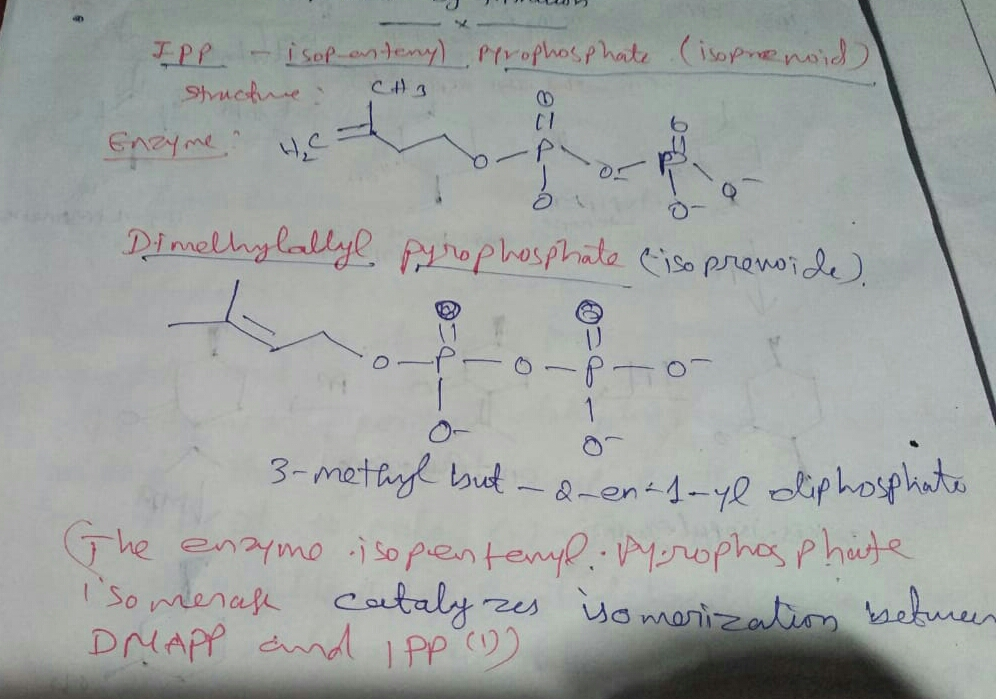 IPP - isopentenyl pyrophosphate (isoprenoid)
structure:
CH3
Enzyme:
H2C
O P O P O-
O O-
Dimethylallyl pyrophosphate (isoprenoide).
O-P-O-P-O-
O- O-
3-methyl but-2-en-1-yl diphosphate
(The enzyme isopentenyl. Pyrophosphate
isomerase catalyzes isomerization between
DMAPP and IPP (1))